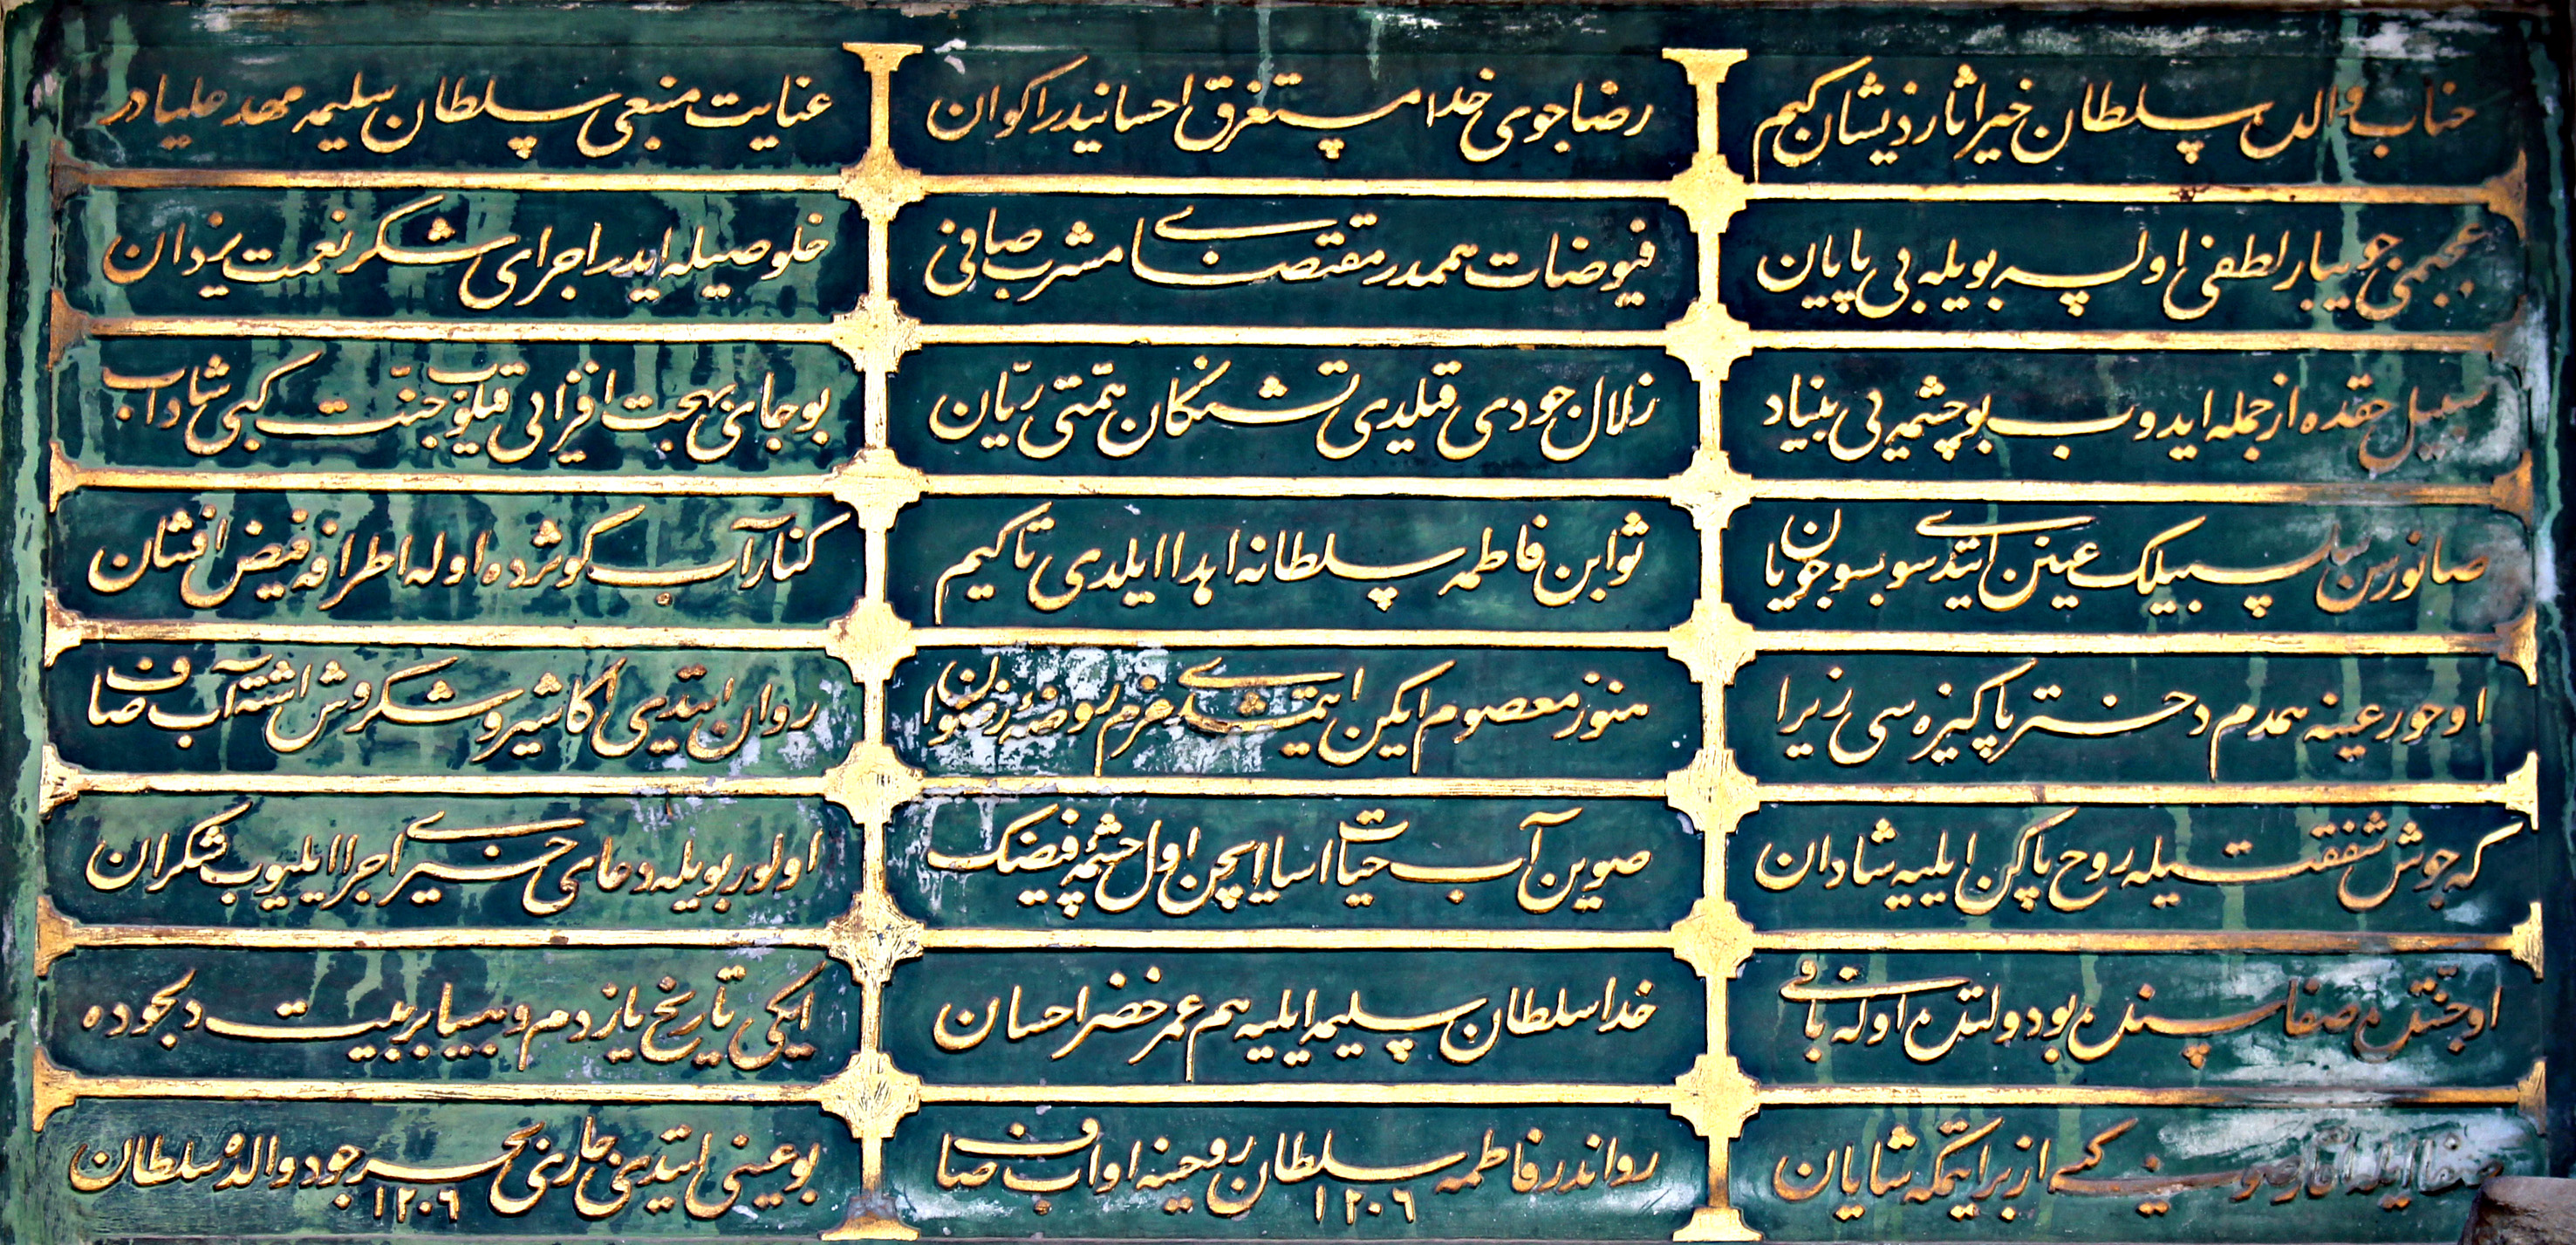 جناب والده سلطان خیر اثار ذیشان کیم
رضاجوی خدا مستغرق احسانیدر اکوان
عنایت منبعی سلطان سلیمه مهد علیادر
عجبمی جویبار لطفی اولسه بویله بی پایان
فیوضات هممدر مقتضای مشرب صافی
خلوصیله ایدر اجرای شکر نعمت یزدان
سبیل حقده از جمله ایدوب بو چشمه یی بنیاد
زلال جودی قیلدی تشنکان همتی ریان
بو جای بهجت افزایی قیلوب جنت کبی شاداب
صانورسن سلسبیلک عینن ایتدی سو بسو جریان
ثوابن فاطمه سلطانه اهدا ایلدی تا کیم
کنار آب کوثرده اوله اطرافه فیض افشان
او حور عینه همدم دختر پاکیزه سی زیرا
هنوز معصوم ایکن ایتمشدی عزم روضهٔ رضوان
روان ایتدی اکا شیر و شکروش اشته آب صاف
که جوش شفقتیله روح پاکن ایلیه شادان
صوین آب حیات اسا ایچن اول چشمهٔ فیضک
اولور بویله دعای خیری اجرا ایلیوب شکران
او جنتده صفاسنده بو دولتده اوله باقی
خدا سلطان سلیمه ایلیه هم عمر خضر احسان
ایکی تاریخ یازدم وهبیا بر بیت دلجوده
صفا ایله صوین کسه از بر ایتمکه شایان
رواندر فاطمه سلطان روحینه او آب صاف ١٢٠٦
بو عینی ایتدی جاری بحر جود والدهٔ سلطان ١٢٠٦